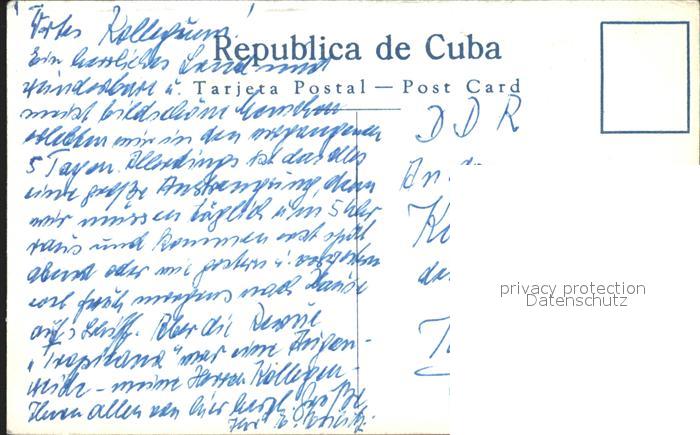 Wertes Kollegium!
Ein herrliches Land und
wunderbare u.
meist bildschöne Menschen
erlebten wir in den vergangenen
5 Tagen. Allerdings ist das alles
eine große Anstrengung, denn
wir müssen täglich um 5 Uhr
raus und kommen erst spät
abend oder wie gestern u. vorgestern
erst früh morgens nach Hause
auf's Schiff. Aber die Revue
„Tropicana" war eine Augen-
weide - meine Herren Kollegen -
Ihnen allen von hier herzl. Grüße
Ihr
Republica de Cuba
Tarjeta Postal — Post Card
DDR
An
privacy protection
Datenschutz